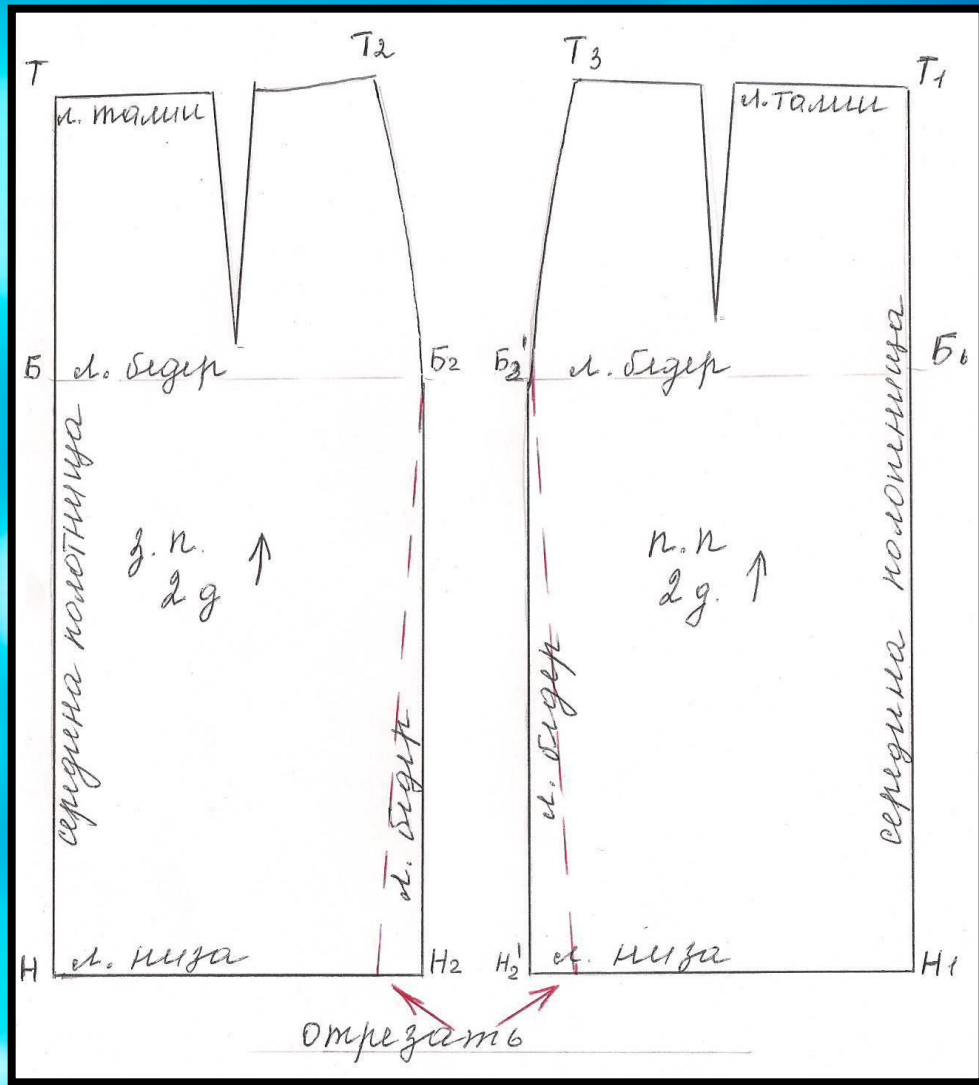 Т
Т2
Т3
Т1
л. талии
л. талии
Б
л. бедер
Б2
Б2'
л. бедер
Б1
середина полотнища
з. п.
2 д
п. п
2 д.
середина полотнища
л. бедер
л. бедер
Н
л. низа
Н2
Н2'
л. низа
Н1
отрезать